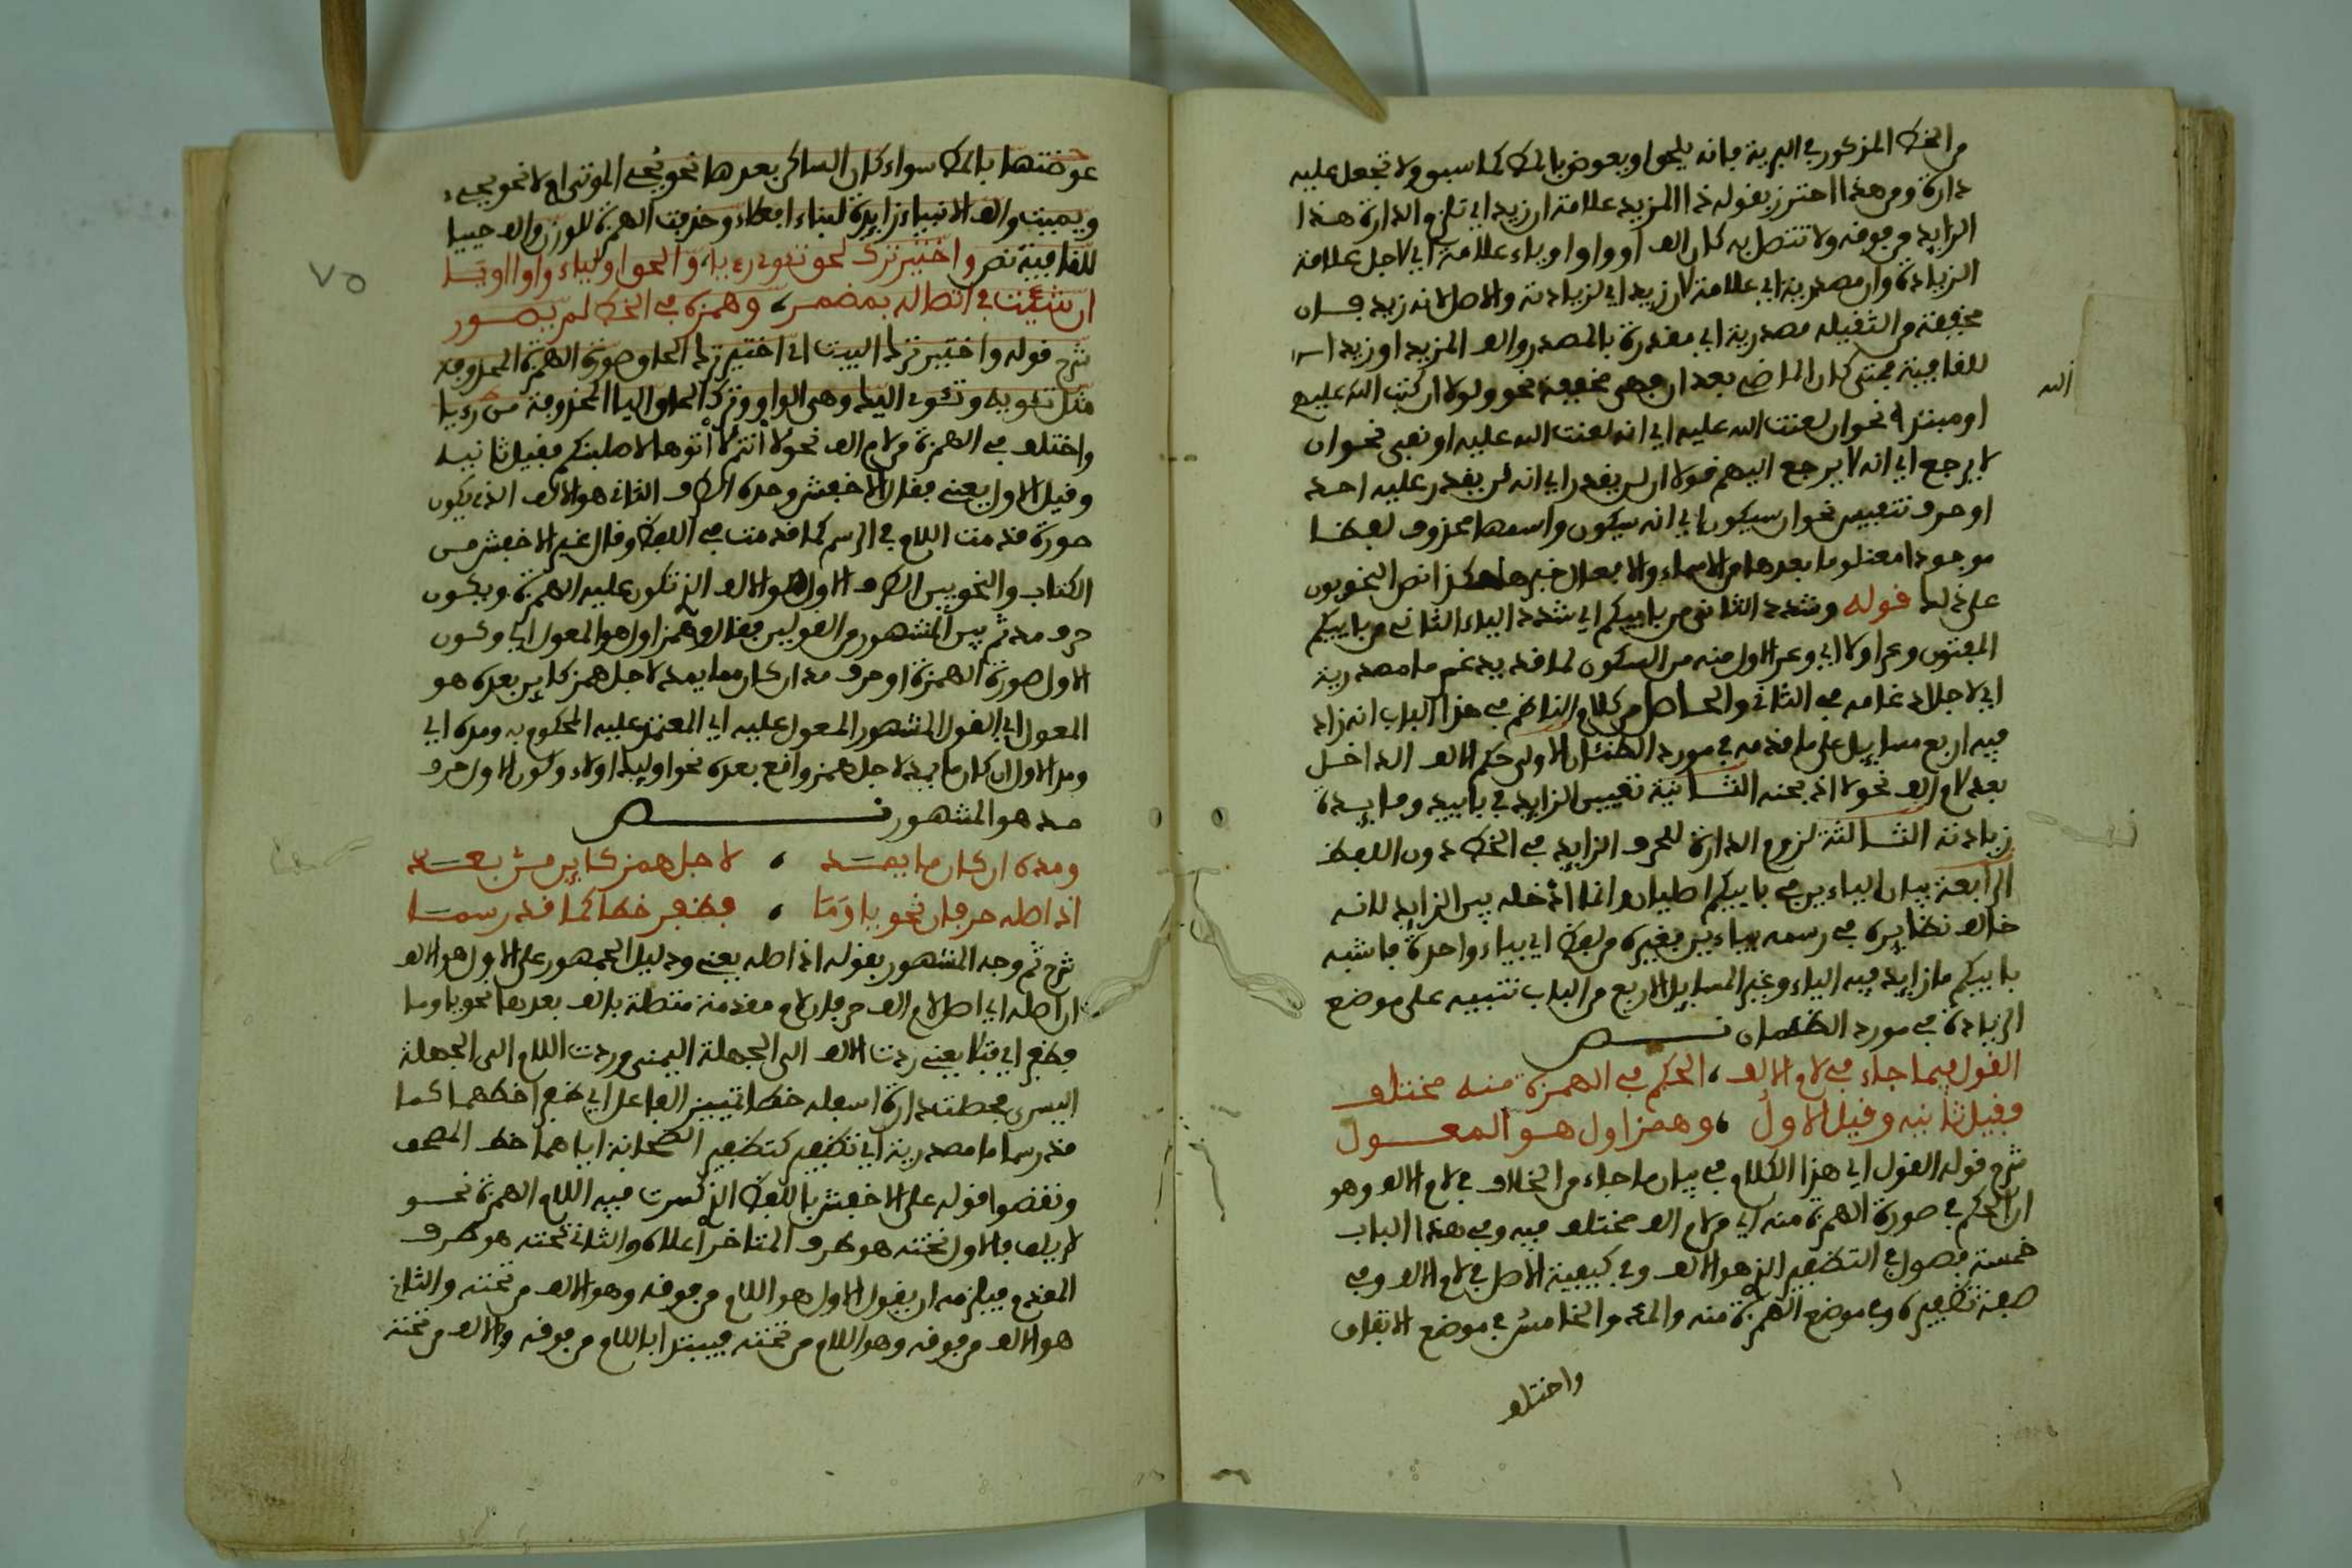 من الخط المذكور في البرية فانه يلحق او يعوض بالمط كما سبق ولا تجعل عليه
دارة ومن هذا احترز بقوله ذا المزيد علامة ان زيد اي تلزم الدارة هذا
الزايد من فوقه ولا تتصل به كان الف او واوا او ياء علامة اي لاجل علامة
الزيادة وان مصدرية اي علامة لان زيد اي لزيادته والاصل لانه زيد فان
مخففة من الثقيلة مصدرية اي مقدرة بالمصدر والف المزيد او زيد
للقافية فمتى كان الماضي بعد ان فهي مخففة نحو ولولا ان كتب الله عليهم
الله
او مبتدا نحو ان لعنت الله عليه اي انه لعنت الله عليه او نفي نحو ان
لا يرجع اي انه لا يرجع اليهم قولا ان لن يقدر اي انه لن يقدر عليه احد
او حرف تنفيس نحو ان سيكون اي انه سيكون واسمها محذوف لفظا
موجود معنى وما بعدها من الاسماء والافعال خبرها هكذا نص النحويون
على ذلك قوله وشدد الثاني من بأييكم اي شدد الياء الثاني من بأييكم
المفتون وعر اولا اي وعر الاول منه من السكون لما قد يدغم ما مصدرية
اي لاجل ادغامه في الثاني والحاصل من كلام الناظم في هذا الباب انه زاد
فيه اربع مسايل على ما قدمه في مورد الظمئان الاولى حكم الالف الداخل
بعد لام الف نحو لا اذبحنه الثانية تعيين الزايد في بأييد وما يبده
زيادته الثالثة لزوم الدارة للحرف الزايد في الخط دون اللفظ
الرابعة بيان الياءين في بأييكم اصليان وانما ادخله بين الزايد لانه
خالف نظايره في رسمه بياءين بغيره من لفظ اي بياء واحدة فاشبه
بأييكم ما زايد فيه الياء وغير المسايل الاربع من الباب تنبيه على موضع
الزيادة في مورد الظمئان نص
القول فيما جاء في لام الالف ، الحكم في الهمزة منه مختلف
فقيل ثانيه وقيل الاول ، وهمز اول هو المعول
شرح قوله القول اي هذا الكلام في بيان ما جاء من الخلاف في لام الالف وهو
ان الحكم في صورة الهمزة منه اي من لام الف مختلف فيه وفي هذا الباب
خمسة فصول في التظفير الذي هو الالف وفي كيفية الاصل في لام الالف وفي
صفة تظفيره وفي موضع الهمزة منه والمد والخامس في موضع الابتداء
واختلف
٧٥
عوضتها بالمط سواء كان الساكن بعدها نحو يحي الموتى ام لا نحو يحي
ويميت والف الانبياء زايدة لبناء افعلاء وحذفت الهمزة للوزن والف حييا
للقافية نص واختير ترك لحق تئوي رءيا ، والحق اولياء واوا او يا
ان شئت في اتصاله بمضمر ، وهمزه في الخط لم يصور
شرح قوله واختير ترك البيت اي اختير ترك الحاق صورة الهمزة المحذوفة
مثل تئويه وتئوي اليك وهي الواو وترك الحاق اليا المحذوفة من رءيا
واختلف في الهمزة من لام الف نحو لأنتم لأتوها لأصلبنكم فقيل ثانيه
وقيل الاول يعني فقال الاخفش وحده الطرف الثاني هو الالف الذي يكون
صورة قدمت اللام في الرسم كما قدمت في اللفظ وقال غير الاخفش من
الكتاب والنحويين الطرف الاول هو الالف الذي تكون عليه الهمزة ويكون
حرف مد ثم بين المشهور من القولين فقال وهمز اول هو المعول اي وكون
الاول صورة الهمزة او حرف مد ان كان مما يمد لاجل همز كاين بعده هو
المعول اي القول المشهور المعول عليه اي المعتمد عليه المحكوم به ومده اي
ومد الاول ان كان ما يمد لاجل همز واقع بعده نحو اوليك اولاء وكون الاول حرف
مد هو المشهور نص
ومده ان كان ما يمد ، لاجل همز كاين من بعد
اذ اصله حرفان نحو يا وما ، فظفر خطا كما قد رسما
شرح ثم وجه المشهور بقوله اذ اصله يعني ودليل الجمهور على الاول هو الالف
ان اصله اي اصل لام الف حرفان لام مقدمة متصلة بالف بعدها نحو يا وما
فظفر اي فتلا يعني ردت الالف الى الجهلة اليمنى وردت اللام الى الجهلة
اليسرى فحصلت دارة اسفله خطا تمييز الفاعل اي ظفر خطهما كما
قد رسما ما مصدرية اي تظفير كتظفير الصحابة اياهما خط المصحف
ونقضوا قوله على الاخفش باللفظ الذي كسرت فيه اللام الهمزة نحو
لإيلف فالاول تحته هو طرف المتاخر اعلاه والثاني تحته هو طرف
المقدم فيلزمه ان يقول الاول هو اللام من فوقه وهو الالف من تحته والثاني
هو الالف من فوقه وهو اللام من تحته فيبتدا باللام من فوقه والالف من تحته